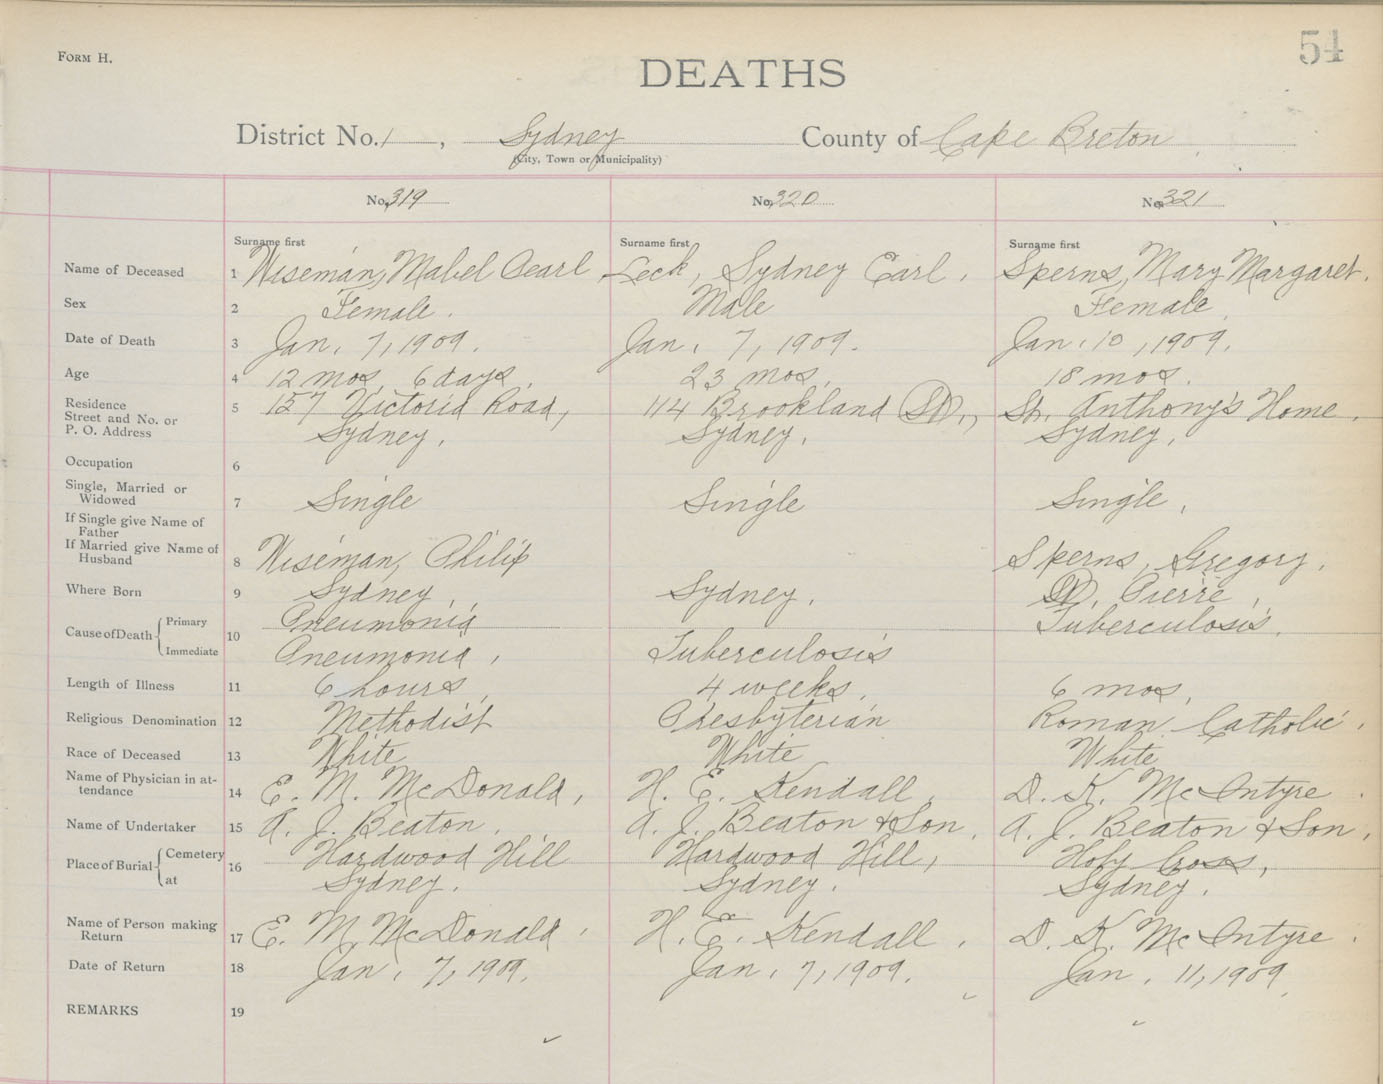 54
FORM H.
DEATHS
District No. 1, Sydney County of Cape Breton
(City, Town or Municipality)
No. 319 No. 320 No. 321
Surname first Surname first Surname first
Name of Deceased 1 Wiseman, Mabel Pearl Leck, Sydney Earl. Sperns, Mary Margaret.
Sex 2 Female. Male Female.
Date of Death 3 Jan. 7, 1909. Jan. 7, 1909. Jan. 10, 1909.
Age 4 12 mos. 6 days. 23 mos. 18 mos.
Residence
Street and No. or 5 157 Victoria Road, 114 Brookland St., St. Anthony's Home.
P. O. Address Sydney. Sydney. Sydney.
Occupation 6
Single, Married or
Widowed 7 Single Single Single.
If Single give Name of
Father
If Married give Name of
Husband 8 Wiseman, Philip Sperns, Gregory.
Where Born 9 Sydney. Sydney. St. Pierre.
Cause of Death Primary 10 Pneumonia Tuberculosis.
Immediate Pneumonia. Tuberculosis
Length of Illness 11 6 hours. 4 weeks. 6 mos.
Religious Denomination 12 Methodist Presbyterian Roman Catholic.
Race of Deceased 13 White White White
Name of Physician in at-
tendance 14 E. M. McDonald. H. E. Kendall. D. K. McIntyre.
Name of Undertaker 15 A. J. Beaton. A. J. Beaton & Son. A. J. Beaton & Son.
Place of Burial Cemetery 16 Hardwood Hill Hardwood Hill, Holy Cross,
at Sydney. Sydney. Sydney.
Name of Person making
Return 17 E. M. McDonald. H. E. Kendall. D. K. McIntyre.
Date of Return 18 Jan. 7, 1909. Jan. 7, 1909. Jan. 11, 1909.
REMARKS 19